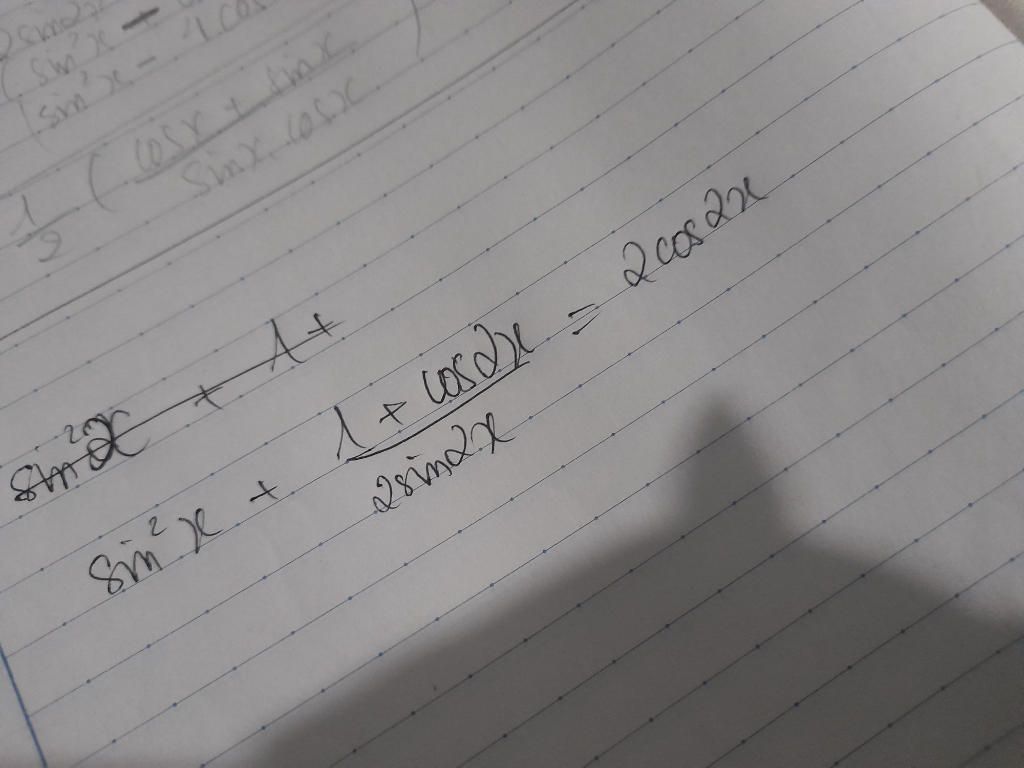 sin²x -
(sin²x - 1 cos
1/2 ( cosx + sinx / sinx cosx )
sin²x + 1 +
sin²x + 1 + cos2x / 2sin2x = 2cos2x